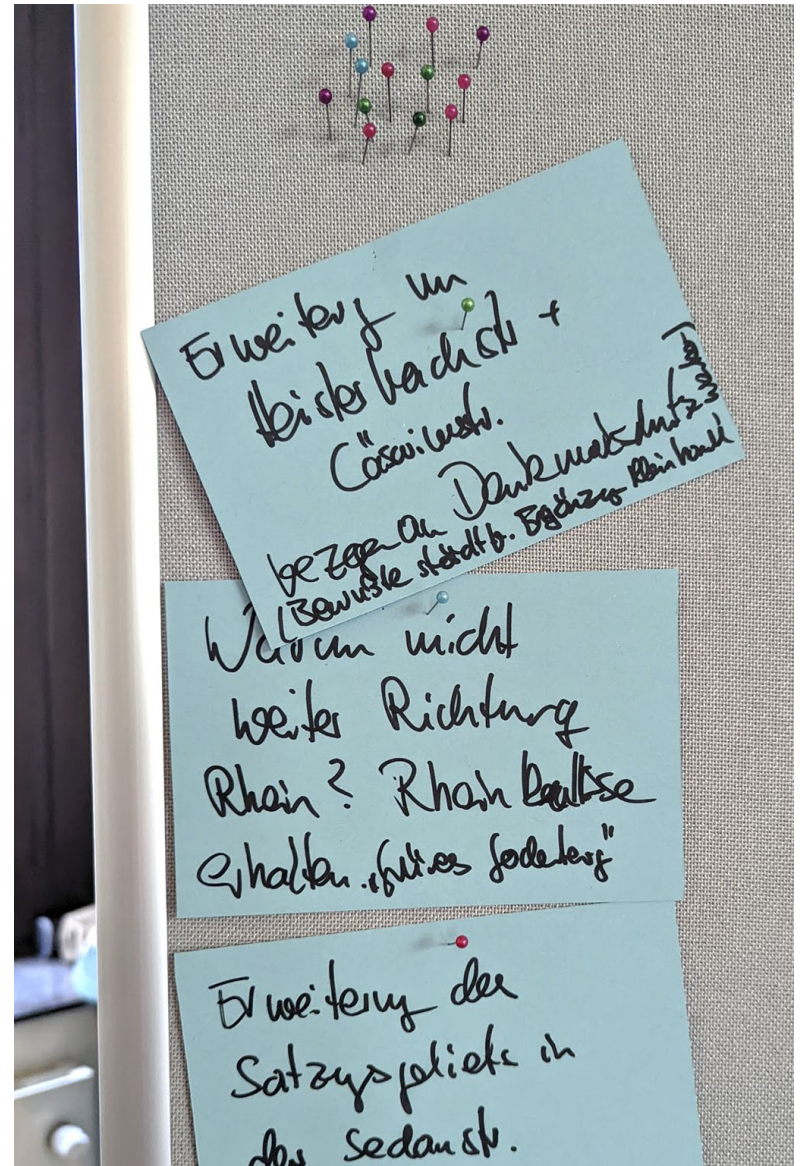 Erweiterg um
Heisterbachstr +
Cäsariusstr.
bezogen an Denkmalschutz
(Bewusste städtb. Ergänzung
Warum nicht
weiter Richtung
Rhein? Rheinkulisse
erhalten. „Grünes Godesberg"
Erweiterung des
Satzungsgebiets in
der Sedanstr.